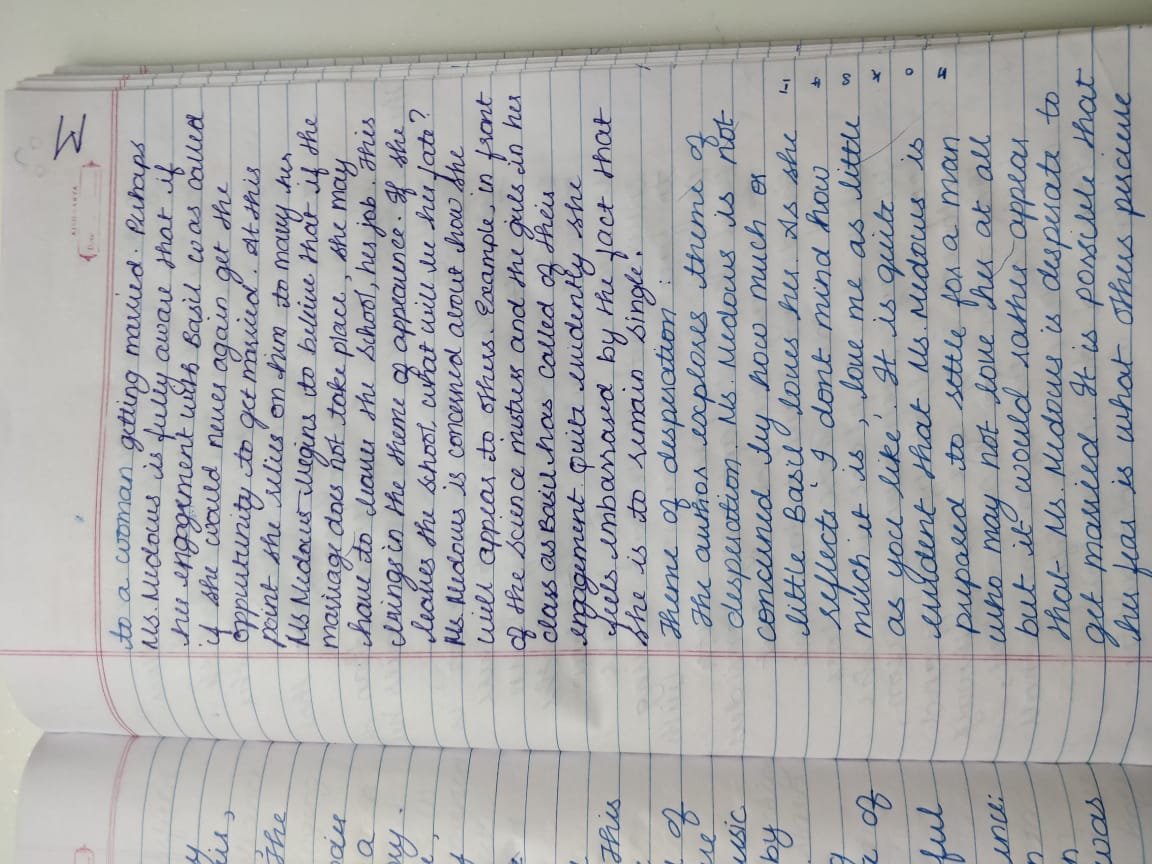 to a woman getting married. Perhaps
Ms. Medows is fully aware that if
her engagement with Basil was called
if she would never again get the
oppurtunity to get married. At this
point she relies on him to marry her.
Ms Medows begins to believe that if the
marriage does not take place, she may
have to leave the school, her job. This
brings in the theme of apperance. If she
leaves the school, what will be her fate?
Ms Medows is concerned about how she
will appear to others. Example, in front
of the science mistress and the girls in her
class as Basil has called of their
engagement. Quite evidently she
feels embarrased by the fact that
she is to remain single.
Theme of desperation :
The author explores theme of
desperation. Ms. Medows is not
concerned by how much or
little Basil loves her. As she
reflects 'I dont mind how
much it is, love me as little
as you like'. It is quite
evident that Ms. Medows is
prepared to settle for a man
who may not love her at all
but it would rather appear
that Ms. Medows is desperate to
get married. It is possible that
her fear is what others percieve
This
of
usic
by
of
ful
was
the
a